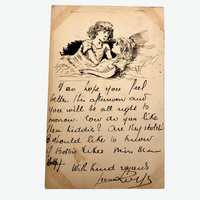 I do hope you feel
better this afternoon and
you will be all right to
morrow. How do you like
these kiddies? Are they
I should like to know
if Bobbie likes Miss
With Kind regards